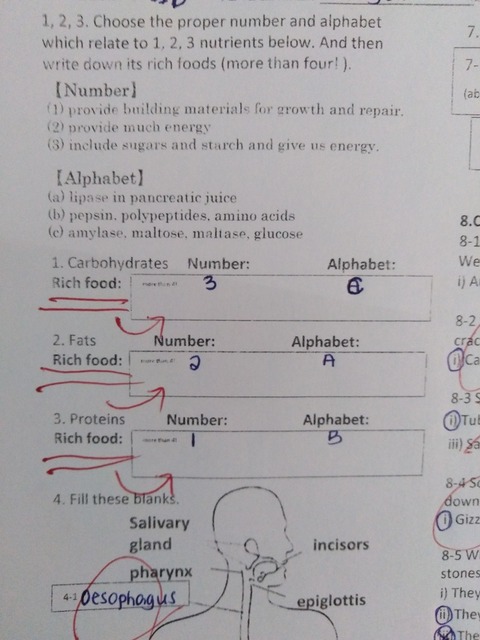 1, 2, 3. Choose the proper number and alphabet
which relate to 1, 2, 3 nutrients below. And then
write down its rich foods (more than four! ).
【Number】
(1) provide building materials for growth and repair.
(2) provide much energy
(3) include sugars and starch and give us energy.
【Alphabet】
(a) lipase in pancreatic juice
(b) pepsin, polypeptides, amino acids
(c) amylase, maltose, maltase, glucose
1. Carbohydrates Number: Alphabet:
Rich food: more than 4! 3 C
2. Fats Number: Alphabet:
Rich food: more than 4! 2 A
3. Proteins Number: Alphabet:
Rich food: more than 4! 1 B
4. Fill these blanks.
Salivary
gland
incisors
pharynx
4-1 Oesophagus
epiglottis
7.
7-
(ab
8.C
8-1
We
i) A
8-2
crac
i) Ca
8-3 S
i) Tul
iii) Sa
8-4 Sc
down
i) Gizz
8-5 W
stones
i) They
ii) They
The